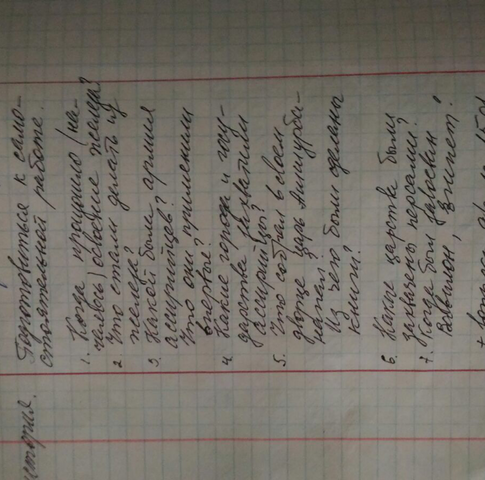 история.
Подготовиться к само-
стоятельной работе.
1. Когда произошло (на-
чалось) освоение железа?
2 Что стали делать из
железа?
3. Какой была армия
ассирийцев?
Что они применили
впервые?
4 Какие города и госу-
дарства захватили
ассирийцы?
5. Что собрал в своем
дворце царь Ашшурба-
напал?
Из чего были сделаны
книги?
6. Какие царства были
захвачены персами?
7. Когда был завоеван
Вавилон, Египет?
+ вопросы